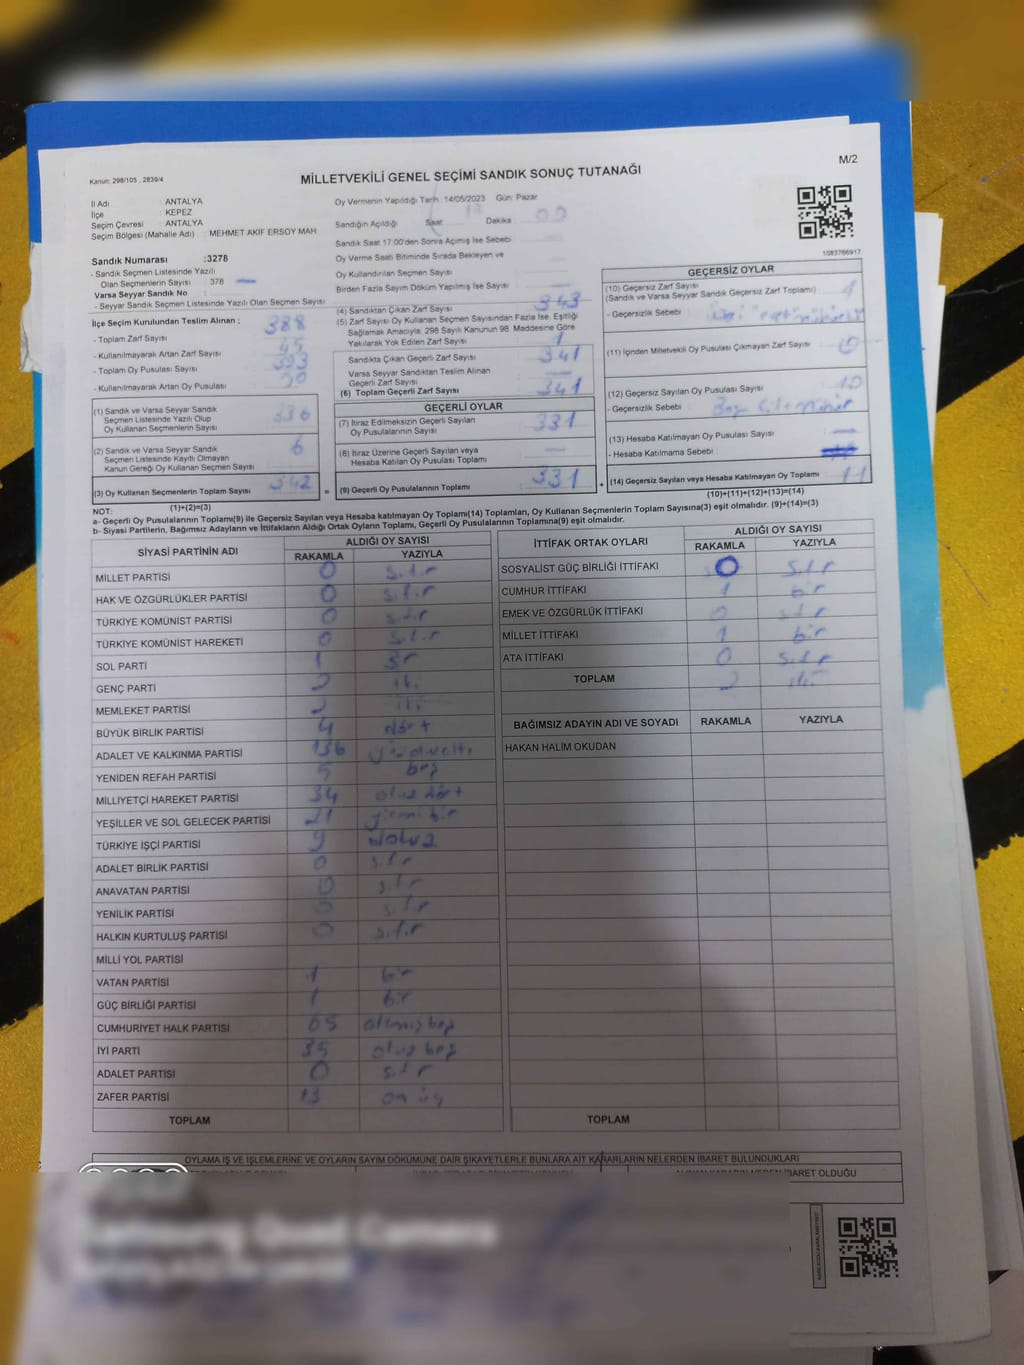 Kanun: 298/105 , 2839/4
MİLLETVEKİLİ GENEL SEÇİMİ SANDIK SONUÇ TUTANAĞI
M/2
İl Adı : ANTALYA
İlçe : KEPEZ
Seçim Çevresi : ANTALYA
Seçim Bölgesi (Mahalle Adı) : MEHMET AKİF ERSOY MAH.
Oy Vermenin Yapıldığı Tarih 14/05/2023 Gün: Pazar
Sandığın Açıldığı Saat Dakika 00
Sandık Saat 17:00'den Sonra Açımış İse Sebebi
Oy Verme Saati Bitiminde Sırada Bekleyen ve
Oy Kullandırılan Seçmen Sayısı
Birden Fazla Sayım Döküm Yapılmış İse Sayısı
1083766917
Sandık Numarası :3278
- Sandık Seçmen Listesinde Yazılı
Olan Seçmenlerin Sayısı : 378
Varsa Seyyar Sandık No :
- Seyyar Sandık Seçmen Listesinde Yazılı Olan Seçmen Sayısı :
İlçe Seçim Kurulundan Teslim Alınan ;
- Toplam Zarf Sayısı 388
- Kullanılmayarak Artan Zarf Sayısı 45
- Toplam Oy Pusulası Sayısı 393
- Kullanılmayarak Artan Oy Pusulası
(1) Sandık ve Varsa Seyyar Sandık
Seçmen Listesinde Yazılı Olup
Oy Kullanan Seçmenlerin Sayısı 336
(2) Sandık ve Varsa Seyyar Sandık
Seçmen Listesinde Kayıtlı Olmayan
Kanun Gereği Oy Kullanan Seçmen Sayısı 6
(3) Oy Kullanan Seçmenlerin Toplam Sayısı 342
(1)+(2)=(3)
(4) Sandıktan Çıkan Zarf Sayısı 343
(5) Zarf Sayısı Oy Kullanan Seçmen Sayısından Fazla İse, Eşitliği
Sağlamak Amacıyla, 298 Sayılı Kanunun 98. Maddesine Göre
Yakılarak Yok Edilen Zarf Sayısı 1
Sandıkta Çıkan Geçerli Zarf Sayısı 341
Varsa Seyyar Sandıktan Teslim Alınan
Geçerli Zarf Sayısı
(6) Toplam Geçerli Zarf Sayısı 341
GEÇERLİ OYLAR
(7) İtiraz Edilmeksizin Geçerli Sayılan
Oy Pusulalarının Sayısı 331
(8) İtiraz Üzerine Geçerli Sayılan veya
Hesaba Katılan Oy Pusulası Toplamı
= (9) Geçerli Oy Pusulalarının Toplamı 331 +
GEÇERSİZ OYLAR
(10) Geçersiz Zarf Sayısı 1
(Sandık ve Varsa Seyyar Sandık Geçersiz Zarf Toplamı)
- Geçersizlik Sebebi
(11) İçinden Milletvekili Oy Pusulası Çıkmayan Zarf Sayısı 0
(12) Geçersiz Sayılan Oy Pusulası Sayısı 10
- Geçersizlik Sebebi
(13) Hesaba Katılmayan Oy Pusulası Sayısı
- Hesaba Katılmama Sebebi
(14) Geçersiz Sayılan veya Hesaba Katılmayan Oy Toplamı 11
(10)+(11)+(12)+(13)=(14)
NOT:
a- Geçerli Oy Pusulalarının Toplamı(9) ile Geçersiz Sayılan veya Hesaba Katılmayan Oy Toplamı(14) Toplamları, Oy Kullanan Seçmenlerin Toplam Sayısına(3) eşit olmalıdır. (9)+(14)=(3)
b- Siyasi Partilerin, Bağımsız Adayların ve İttifakların Aldığı Ortak Oyların Toplamı, Geçerli Oy Pusulalarının Toplamına(9) eşit olmalıdır.
SİYASİ PARTİNİN ADI ALDIĞI OY SAYISI
RAKAMLA YAZIYLA
MİLLET PARTİSİ 0 sıfır
HAK VE ÖZGÜRLÜKLER PARTİSİ 0 sıfır
TÜRKİYE KOMÜNİST PARTİSİ 0 sıfır
TÜRKİYE KOMÜNİST HAREKETİ 0 sıfır
SOL PARTİ 1 bir
GENÇ PARTİ 2 iki
MEMLEKET PARTİSİ 2 iki
BÜYÜK BİRLİK PARTİSİ 4 dört
ADALET VE KALKINMA PARTİSİ 136
YENİDEN REFAH PARTİSİ 5 beş
MİLLİYETÇİ HAREKET PARTİSİ 34 otuz dört
YEŞİLLER VE SOL GELECEK PARTİSİ 21 yirmi bir
TÜRKİYE İŞÇİ PARTİSİ 9 dokuz
ADALET BİRLİK PARTİSİ 0 sıfır
ANAVATAN PARTİSİ 0 sıfır
YENİLİK PARTİSİ 0 sıfır
HALKIN KURTULUŞ PARTİSİ 0 sıfır
MİLLİ YOL PARTİSİ
VATAN PARTİSİ 1 bir
GÜÇ BİRLİĞİ PARTİSİ 1 bir
CUMHURİYET HALK PARTİSİ 65 altmış beş
İYİ PARTİ 35 otuz beş
ADALET PARTİSİ 0 sıfır
ZAFER PARTİSİ 13 on üç
TOPLAM
İTTİFAK ORTAK OYLARI ALDIĞI OY SAYISI
RAKAMLA YAZIYLA
SOSYALİST GÜÇ BİRLİĞİ İTTİFAKI 0 sıfır
CUMHUR İTTİFAKI 1 bir
EMEK VE ÖZGÜRLÜK İTTİFAKI 0 sıfır
MİLLET İTTİFAKI 1 bir
ATA İTTİFAKI 0 sıfır
TOPLAM 2 iki
BAĞIMSIZ ADAYIN ADI VE SOYADI RAKAMLA YAZIYLA
HAKAN HALİM OKUDAN
TOPLAM
OYLAMA İŞ VE İŞLEMLERİNE VE OYLARIN SAYIM DÖKÜMÜNE DAİR ŞİKAYETLERLE BUNLARA AİT KARARLARIN NELERDEN İBARET BULUNDUKLARI